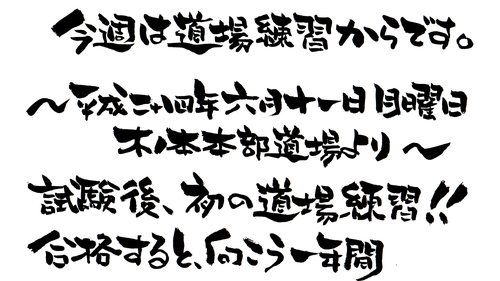 今週は道場練習からです。
〜平成二十四年六月十一日月曜日
木ノ本本部道場より〜
試験後、初の道場練習!!
合格すると、向こう一年間